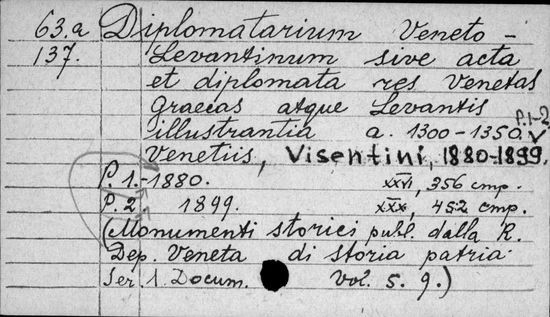 63.a Diplomatarium Veneto-
137. Levantinum sive acta
et diplomata res Venetas
Graecas atque Levantis
illustrantia a. 1300-1350. P.1-2
Venetiis, Visentini, 1880-1899.
P. 1.-1880. XXVI, 356 стр.
P. 2. 1899. XXX, 452 стр.
(Monumenti storici publ. dalla R.
Dep. Veneta di storia patria.
Ser. 1. Docum. Vol. 5. 9.)